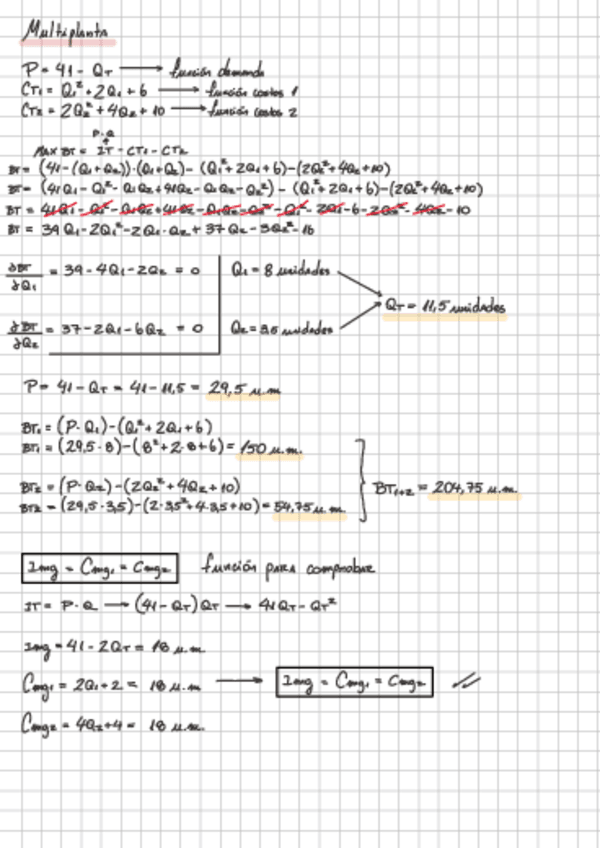 Multiplanta
P = 41 - QT → función demanda
CT1 = Q1² + 2Q1 + 6 → función costos 1
CT2 = 2Q2² + 4Q2 + 10 → función costos 2
P·Q
↑
MAX BT = IT - CT1 - CT2
BT = (41-(Q1+Q2))·(Q1+Q2) - (Q1²+2Q1+6)-(2Q2²+4Q2+10)
BT = (41Q1-Q1²-Q1Q2+41Q2-Q1Q2-Q2²) - (Q1²+2Q1+6)-(2Q2²+4Q2+10)
BT = 41Q1-Q1²-Q1Q2+41Q2-Q1Q2-Q2²-Q1²-2Q1-6-2Q2²-4Q2-10
BT = 39Q1-2Q1²-2Q1·Q2+37Q2-3Q2²-16
∂BT/∂Q1 = 39-4Q1-2Q2 = 0 Q1 = 8 unidades
QT = 11,5 unidades
∂BT/∂Q2 = 37-2Q1-6Q2 = 0 Q2 = 3,5 unidades
P = 41 - QT = 41 - 11,5 = 29,5 u.m.
BT1 = (P·Q1)-(Q1²+2Q1+6)
BT1 = (29,5·8)-(8²+2·8+6) = 150 u.m.
BT2 = (P·Q2)-(2Q2²+4Q2+10)
BT1+2 = 204,75 u.m.
BT2 = (29,5·3,5)-(2·3,5²+4·3,5+10) = 54,75 u.m.
Img = Cmg1 = Cmg2 función para comprobar
IT = P·Q → (41-QT)QT → 41QT-QT²
Img = 41-2QT = 18 u.m.
Cmg1 = 2Q1+2 = 18 u.m → Img = Cmg1 = Cmg2 ✓
Cmg2 = 4Q2+4 = 18 u.m.